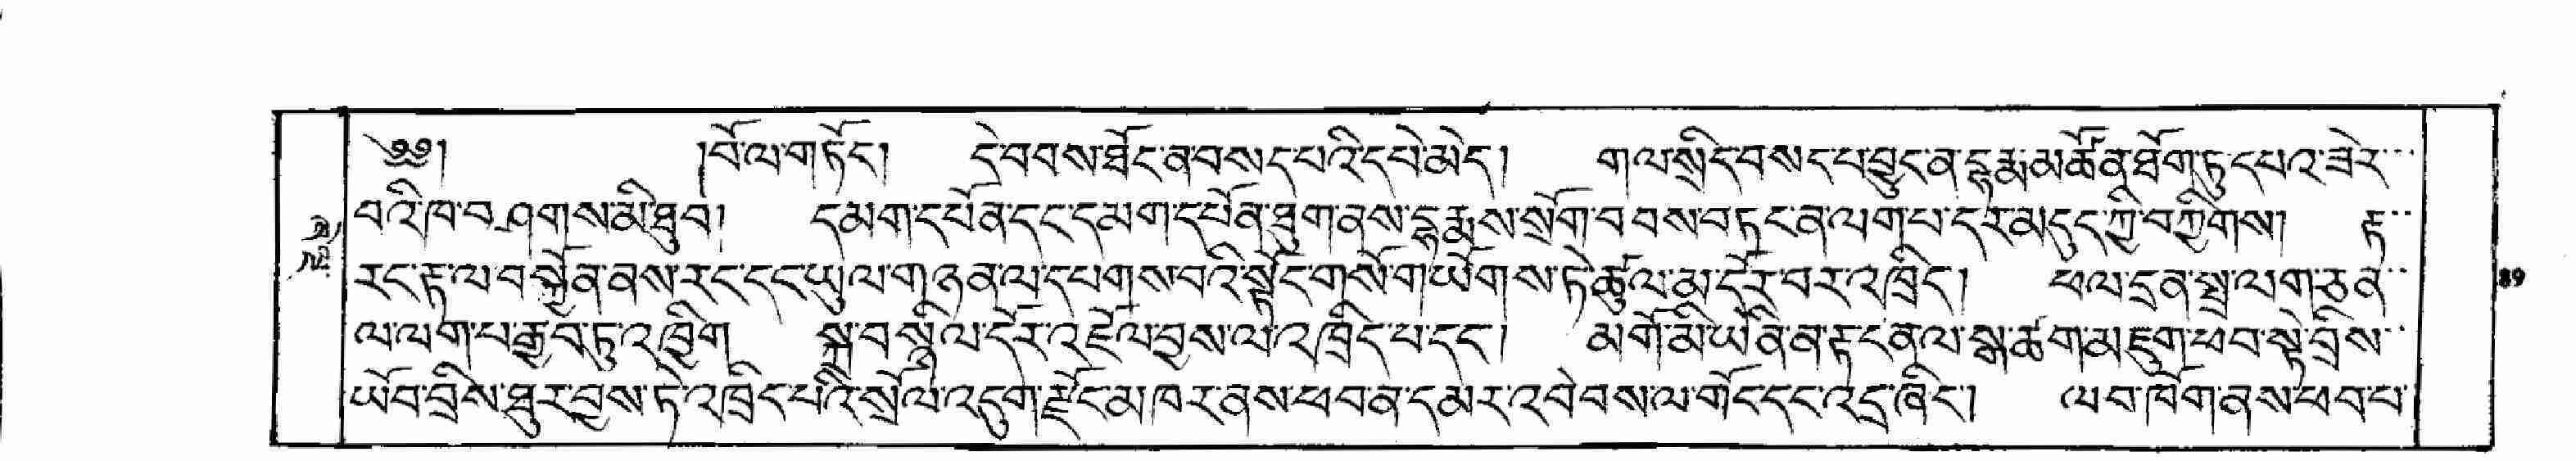 ༄༅། །བོལ་གཏོང། དེ་བབས་ཐོང་ན་བསད་པའི་དཔེ་མེད། གལ་སྲིད་བསད་པ་བྱུང་ན་དྷརྨ་མཚོན་ཐོག་ཏུ་དཔའ་ཟེར་
བའི་ཁ་བ་ཤགས་མི་ཐུབ། དམག་དཔོན་དང་དམག་དཔོན་ཐུག་ནས་དྷརྨས་སྲོག་བབས་བཏང་ན་ལག་པ་དར་མདུད་ཀྱི་བཀྱིགས། རྟ་
རང་རྟ་ལ་བསྐྱོན་ནས་རང་དང་ཡུལ་གཉན་ལ་དཔགས་བའི་སྟོང་གསོ་གཡོགས་ཏེ་ཚུལ་མ་དོར་བར་འཁྲིད། ཕལ་དྲན་སྤྲ་ལག་ཅན་
ལ་ལག་པ་རྒྱབ་ཏུ་འཁྱིག སྐྲ་བསྙིལ་དོར་འཇོལ་བྱས་ལ་འཁྲིད་པ་དང། མགོ་མི་ཡིན་ན་རྟ་ངན་ལ་སྒ་ཚག་མཇུག་ཕབ་སྟེ་བྲིས་
ཡོབ་བྲིས་ཐུར་བྱས་ཏེ་འཁྲིད་པའི་སྲོལ་འདུག་རྫོང་མཁར་ནས་ཕབ་ན་དམར་འབེབས་ལ་གོང་དང་འདྲ་ཞིང། ལབ་ཁོག་ནས་ཕབ་པ་
༤༡